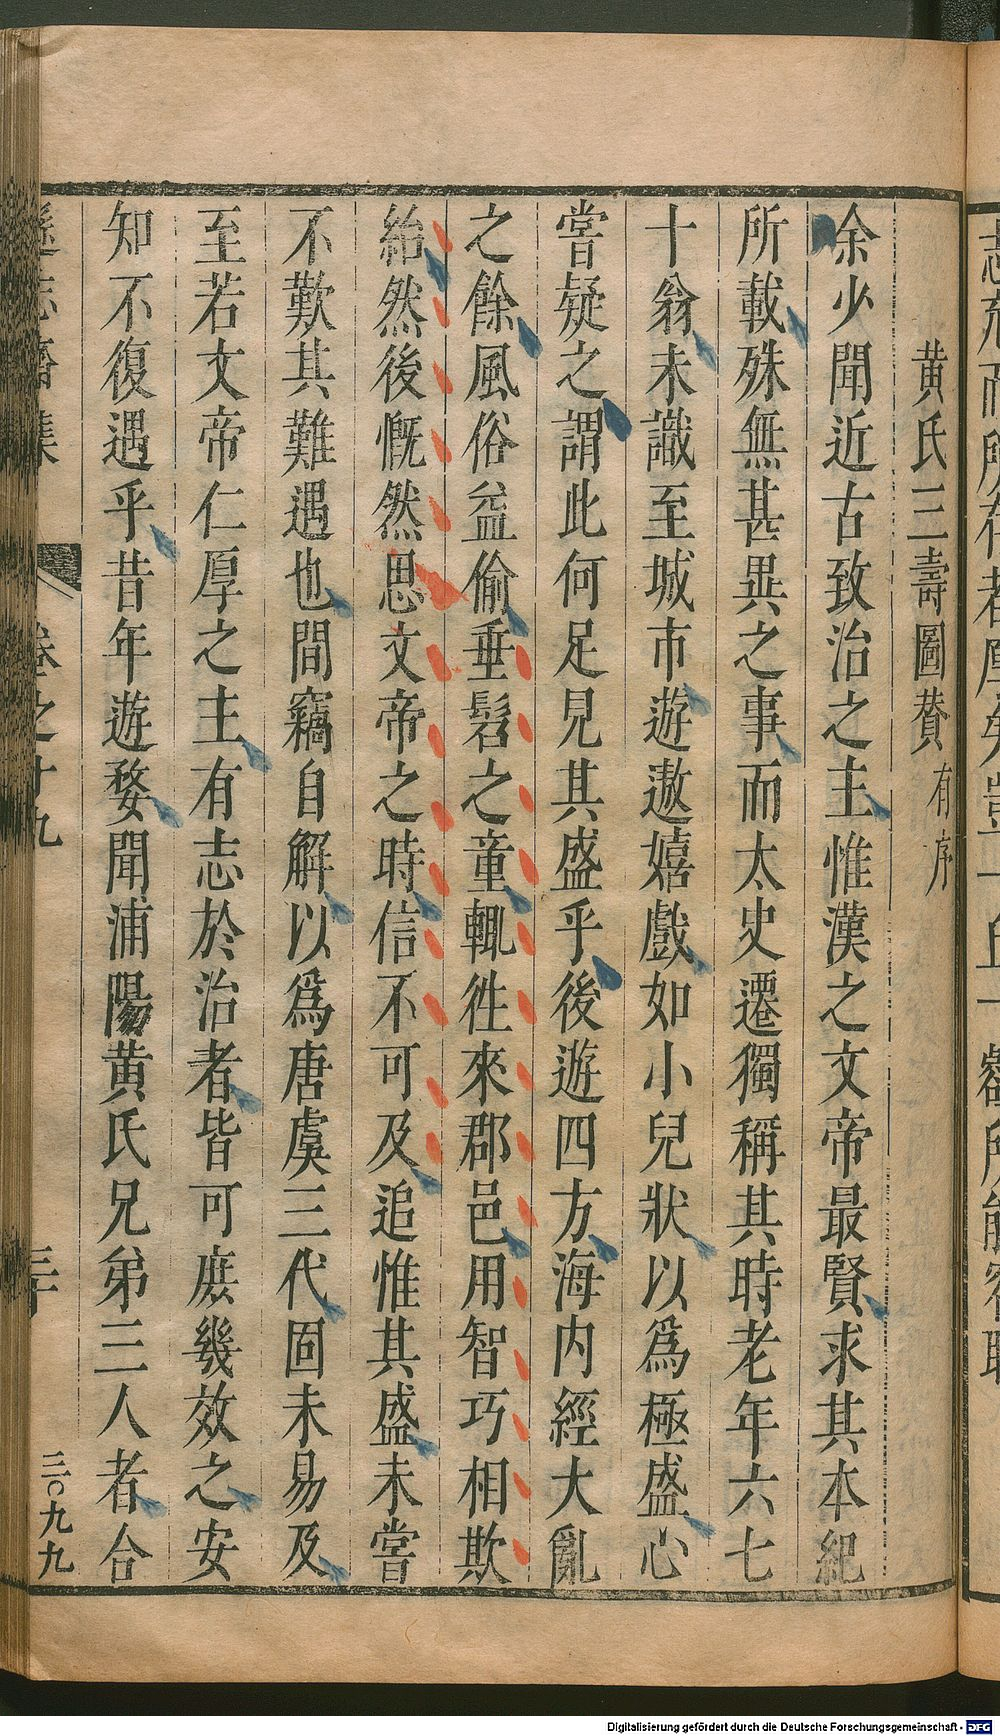 黄氏三壽圖賛有序
余少聞近古致治之主惟漢之文帝最賢求其本紀
所載殊無甚異之事而太史遷獨稱其時老年六七
十翁未識至城市遊遨嬉戲如小兒狀以爲極盛心
嘗疑之謂此何足見其盛乎後遊四方海内經大亂
之餘風俗益偷垂髫之童輒徃來郡邑用智巧相欺
紿然後慨然思文帝之時信不可及追惟其盛未嘗
不歎其難遇也間竊自解以爲唐虞三代固未易及
至若文帝仁厚之主有志於治者皆可庶幾效之安
知不復遇乎昔年遊婺聞浦陽黄氏兄弟三人者合
遜志齋集
卷之十九
三十
三〇九九
Digitalisierung gefördert durch die Deutsche Forschungsgemeinschaft - DFG